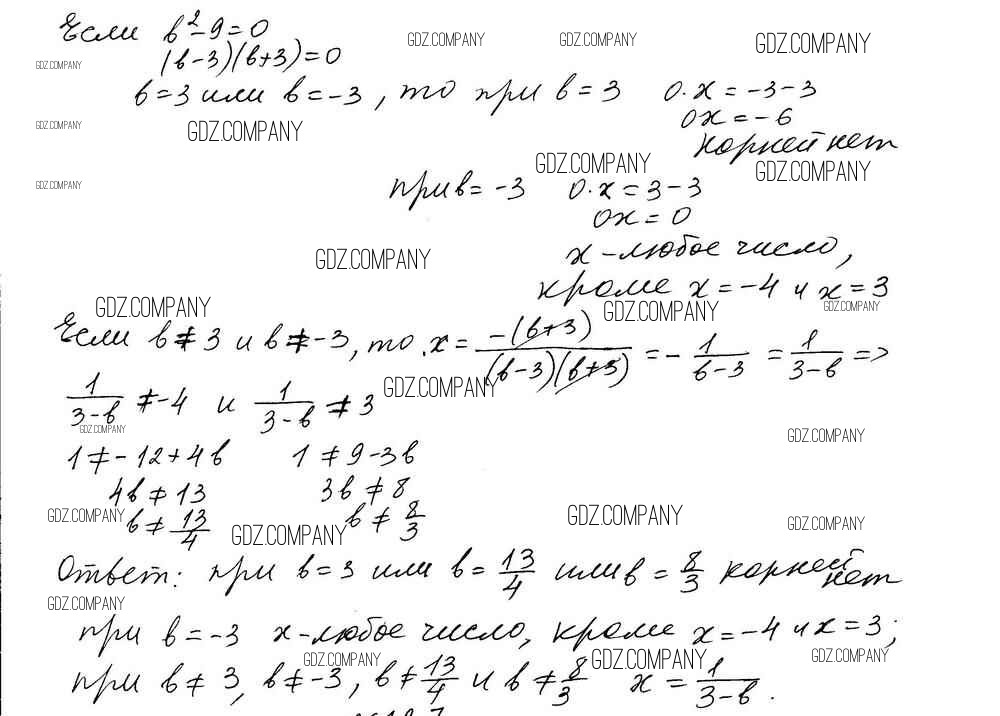 Если b² - 9 = 0
GDZ.COMPANY GDZ.COMPANY GDZ.COMPANY
(b-3)(b+3) = 0
GDZ.COMPANY
b = 3 или b = -3, то при b = 3 0·x = -3-3
GDZ.COMPANY GDZ.COMPANY 0x = -6
корней нет
GDZ.COMPANY GDZ.COMPANY
GDZ.COMPANY при b = -3 0·x = 3-3
0x = 0
GDZ.COMPANY x - любое число,
кроме x = -4 и x = 3
GDZ.COMPANY GDZ.COMPANY GDZ.COMPANY
Если b ≠ 3 и b ≠ -3, то x = -(b+3)/((b-3)(b+3)) = -1/(b-3) = 1/(3-b) =>
1/(3-b) ≠ -4 и 1/(3-b) ≠ 3 GDZ.COMPANY
GDZ.COMPANY GDZ.COMPANY
1 ≠ -12+4b 1 ≠ 9-3b
4b ≠ 13 3b ≠ 8
GDZ.COMPANY GDZ.COMPANY GDZ.COMPANY
b ≠ 13/4 GDZ.COMPANY b ≠ 8/3
Ответ: при b = 3 или b = 13/4 или b = 8/3 корней нет
GDZ.COMPANY
при b = -3 x - любое число, кроме x = -4 и x = 3;
GDZ.COMPANY GDZ.COMPANY GDZ.COMPANY
при b ≠ 3, b ≠ -3, b ≠ 13/4 и b ≠ 8/3 x = 1/(3-b).